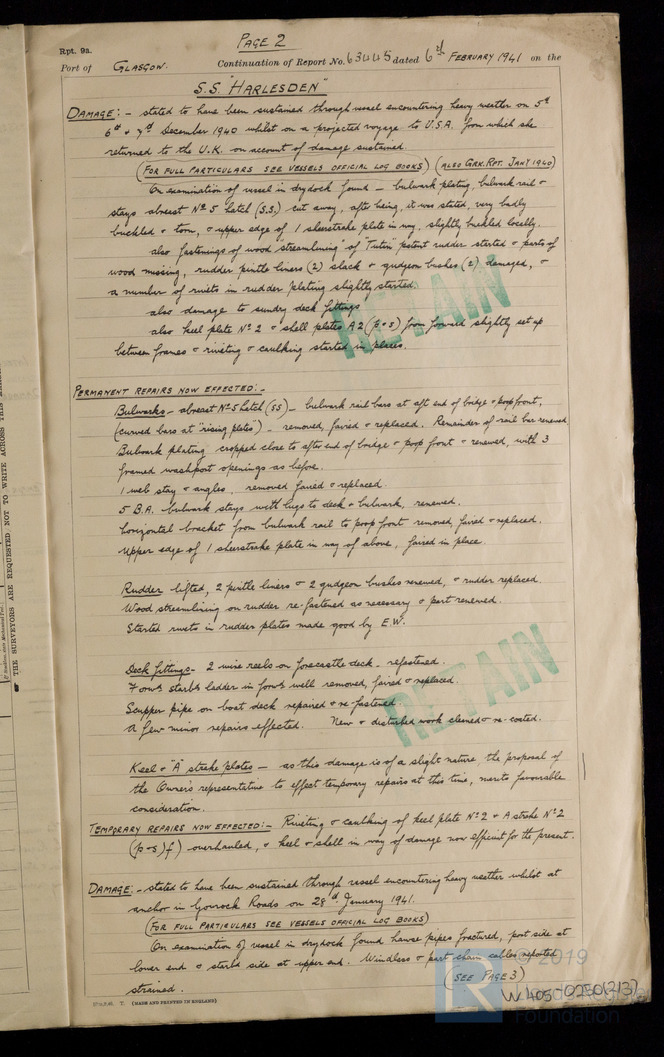 PAGE 2
Rpt. 9a.
Port of GLASGOW. Continuation of Report No. 63445 dated 6th FEBRUARY 1941 on the
S.S. "HARLESDEN"
DAMAGE:- stated to have been sustained through vessel encountering heavy weather on 5th
6th & 7th December 1940 whilst on a projected voyage to U.S.A. from which she
returned to the U.K. on account of damage sustained.
(FOR FULL PARTICULARS SEE VESSELS OFFICIAL LOG BOOKS) (ALSO GRK. RPT. JANY 1940)
On examination of vessel in drydock found - bulwark plating, bulwark rail &
stays abreast No 5 hatch (S.S.) cut away, after being, it was stated, very badly
buckled & torn, & upper edge of 1 sheerstrake plate in way, slightly buckled locally.
also fastenings of wood streamlining of "Tutin" patent rudder started & parts of
wood missing, rudder pintle liners (2) slack & gudgeon bushes (2) damaged, &
a number of rivets in rudder plating slightly started.
also damage to sundry deck fittings
also keel plate No 2 & shell plates A2 (p & s) from forward slightly set up
between frames & riveting & caulking started in places.
RETAIN
PERMANENT REPAIRS NOW EFFECTED:-
Bulwarks - abreast No 5 hatch (SS) - bulwark rail bars at aft end of bridge & poop front,
(curved bars at "rising plates") - removed, faired & replaced. Remainder of rail bar renewed
Bulwark plating cropped close to after end of bridge & poop front & renewed, with 3
framed washport openings as before.
1 web stay & angles, removed faired & replaced.
5 B.A. bulwark stays with lugs to deck & bulwark, renewed.
horizontal bracket from bulwark rail to poop front removed, faired & replaced.
Upper edge of 1 sheerstrake plate in way of above, faired in place.
Rudder lifted, 2 pintle liners & 2 gudgeon bushes renewed, & rudder replaced.
Wood streamlining on rudder re-fastened as necessary & part renewed.
Started rivets in rudder plates made good by E.W.
Deck fittings - 2 wire reels on forecastle deck - refastened.
Forwd starbd ladder in forwd well removed, faired & replaced.
Scupper pipe on boat deck repaired & re-fastened.
A few minor repairs effected. New & disturbed work cleaned & re-coated.
RETAIN
Keel & "A" strake plates - as this damage is of a slight nature, the proposal of
the Owner's representative to effect temporary repairs at this time, merits favourable
consideration.
TEMPORARY REPAIRS NOW EFFECTED:- Riveting & caulking of keel plate No 2 & A strake No 2
(p & s) f) overhauled, & keel & shell in way of damage now efficient for the present.
DAMAGE:- stated to have been sustained through vessel encountering heavy weather whilst at
anchor in Gourock Roads on 28th January 1941.
(FOR FULL PARTICULARS SEE VESSELS OFFICIAL LOG BOOKS)
On examination of vessel in drydock found hawse pipes fractured, port side at
lower end & starbd side at upper end. Windlass & port chain cables reported
strained.
(SEE PAGE 3)
(MADE AND PRINTED IN ENGLAND)
W405-0250(2/3)
© 2019
Foundation
THE SURVEYORS ARE REQUESTED NOT TO WRITE ACROSS THIS